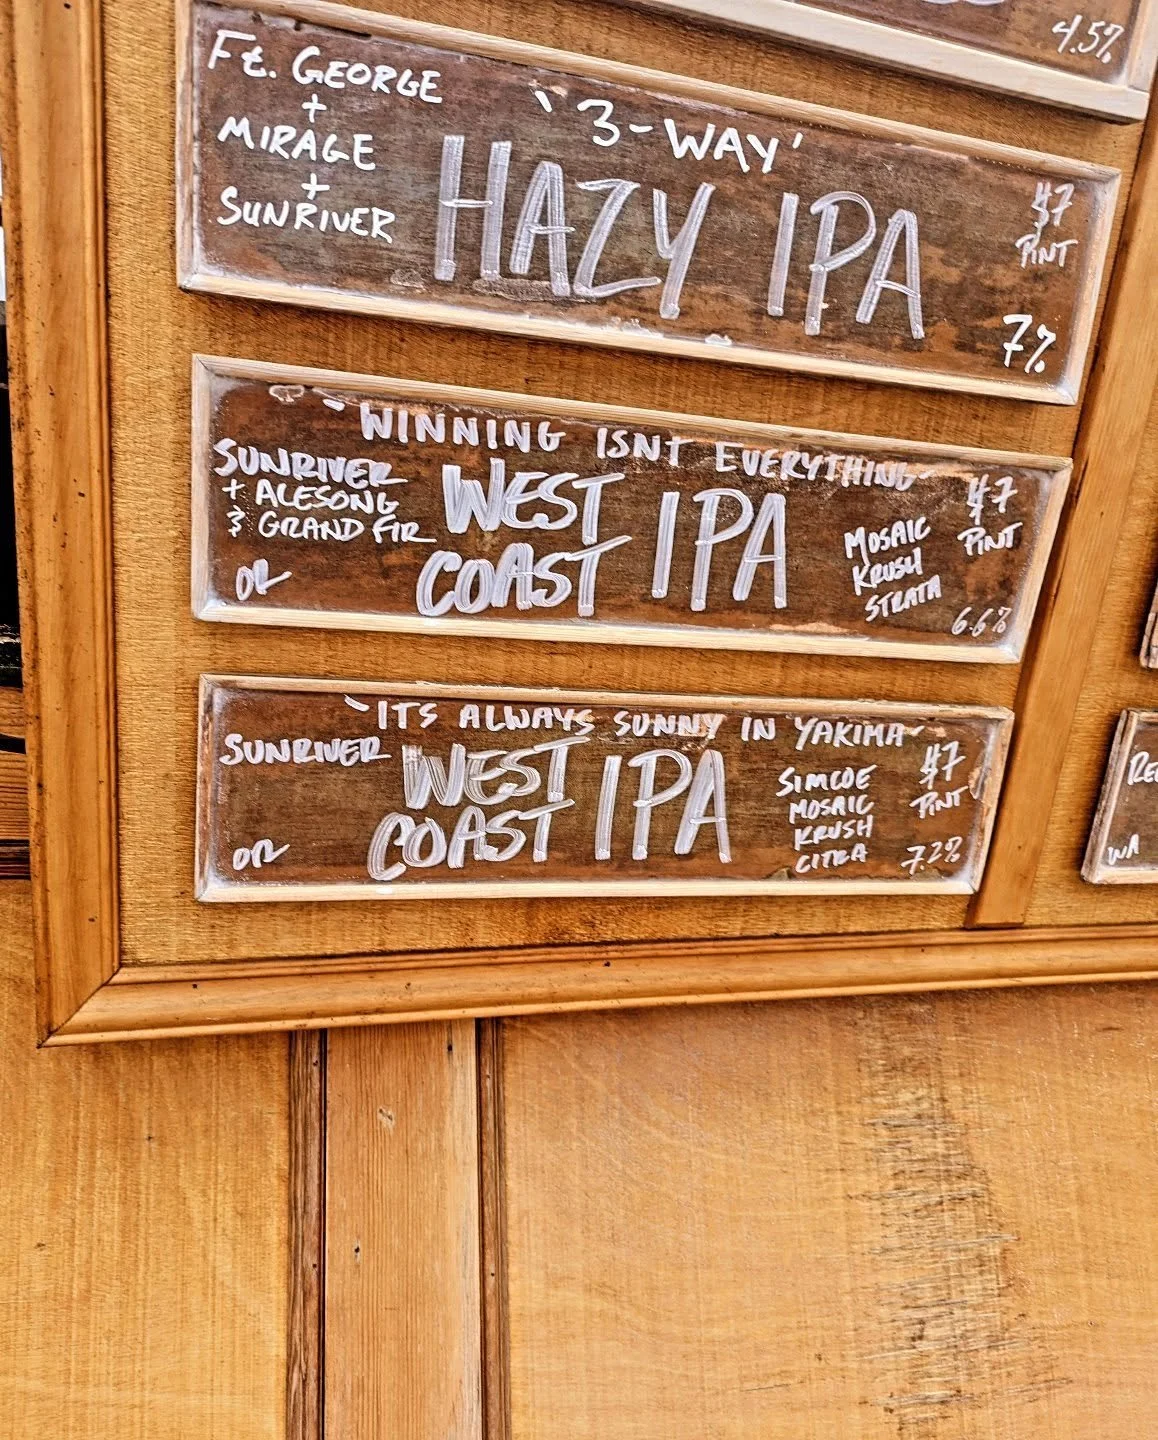 4.5%
Ft. GEORGE
+
MIRAGE
+
SUNRIVER
'3-WAY'
HAZY IPA
$7
PINT
7%
"WINNING ISNT EVERYTHING"
SUNRIVER
+ ALESONG
& GRAND FIR
OR
WEST
COAST
IPA
MOSAIC
KRUSH
STRATA
$7
PINT
6.6%
"ITS ALWAYS SUNNY IN YAKIMA"
SUNRIVER
OR
WEST
COAST
IPA
SIMCOE
MOSAIC
KRUSH
CITRA
$7
PINT
7.2%
WA